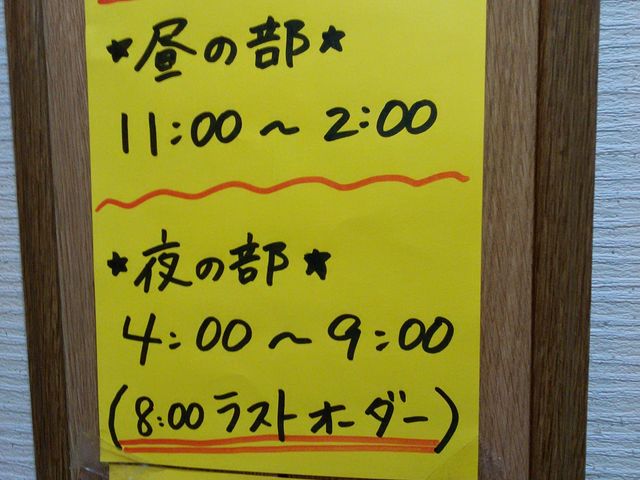 ★昼の部★
11:00～2:00
★夜の部★
4:00～9:00
(8:00ラストオーダー)